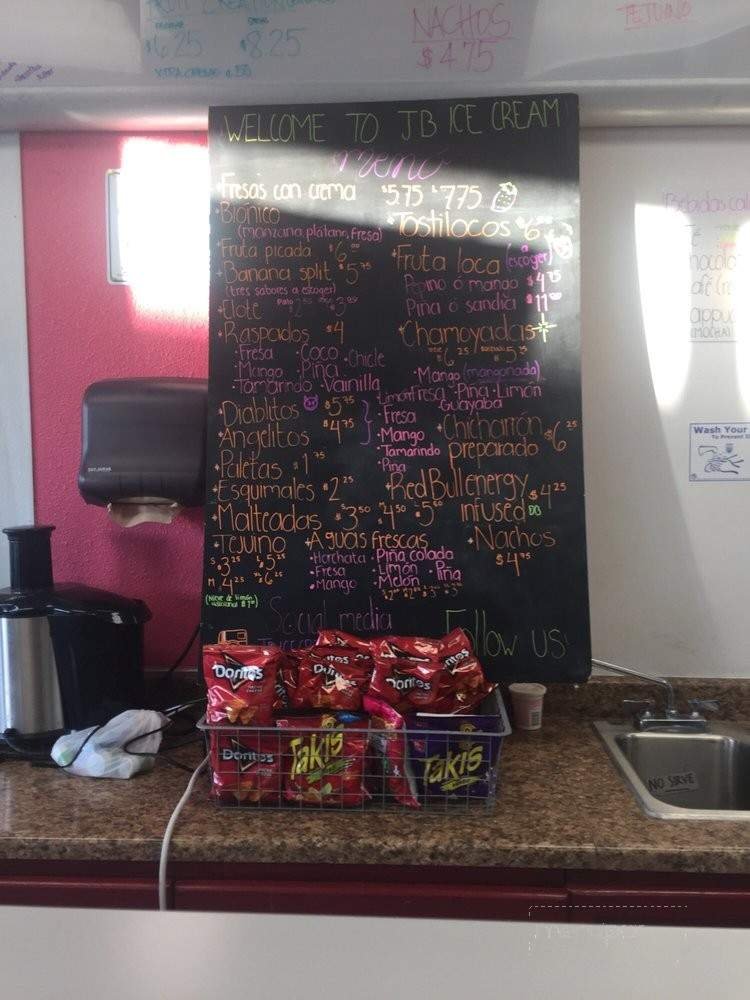 $6.25 $8.25
XTRA CREMA .50
NACHOS
$4.75
TEJUINO
WELCOME TO JB ICE CREAM
menú
Fresas con crema $5.75 $7.75
•Bionico
(manzana, platano, fresa)
•Fruta picada $6.00
•Banana split $5.75
(tres sabores a escoger)
•Elote
•Raspados $4
•Fresa •Coco •Chicle
•Mango •Piña
•Tamarindo •Vainilla
•Diablitos $5.75
•Angelitos $4.75
•Fresa
•Mango
•Tamarindo
•Piña
•Paletas $1.75
•Esquimales $2.25
•Malteadas $3.50 $4.50 $5.50
•Tejuino
S $3.25 L $5.25
M $4.25 $6.25
(Nieve de limón adicional $1.00)
•Aguas frescas
•Horchata •Piña colada
•Fresa •Limón •Piña
•Mango •Melón
•Tostilocos $6
•Fruta loca (escoger)
Pepino ó mango $4.75
Piña ó sandía $11.00
•Chamoyadas
$6.25 $5.75
•Mango (mangonada)
•Limón Fresa •Piña •Limón
Guayaba
•Chicharrón preparado $6.25
•Red Bull energy infused $4.25
•Nachos
$4.75
Social media
Follow us
Doritos
Doritos
Doritos
Doritos
Doritos
Takis
Takis
NO SIRVE
Wash Your
Bebidas